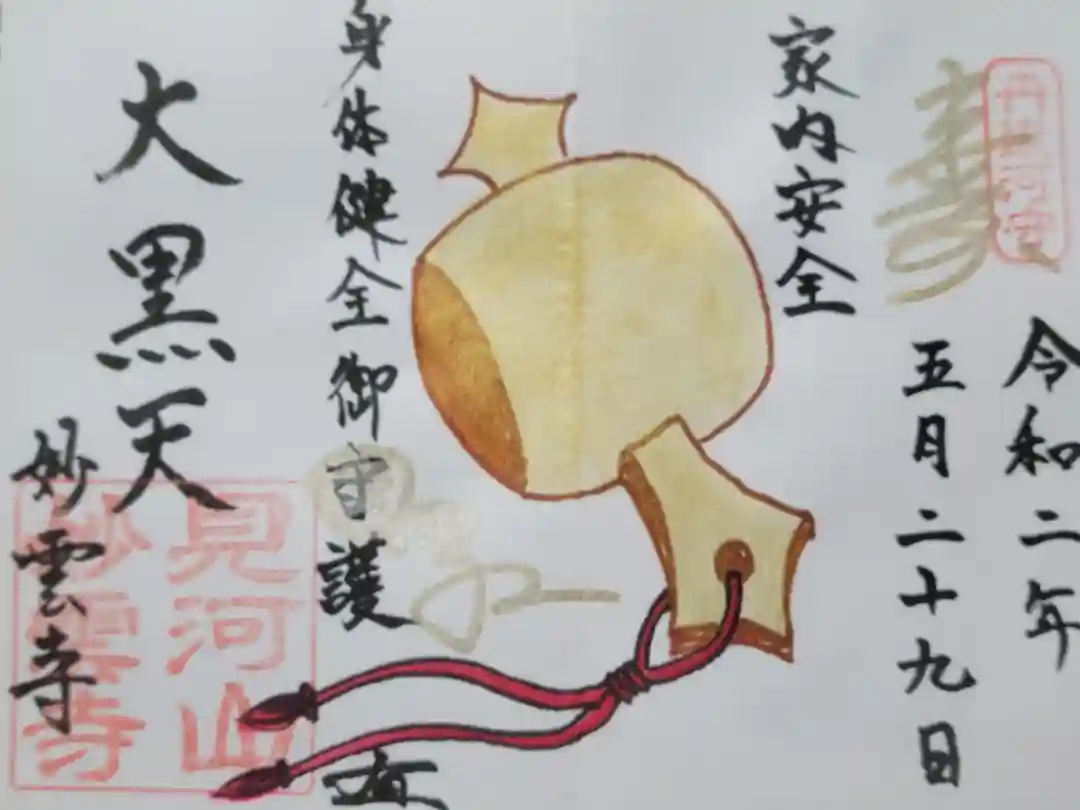 令和二年
五月二十九日
寿
家内安全
身体健全御守護
大黒天
妙雲寺
見河山
妙雲寺